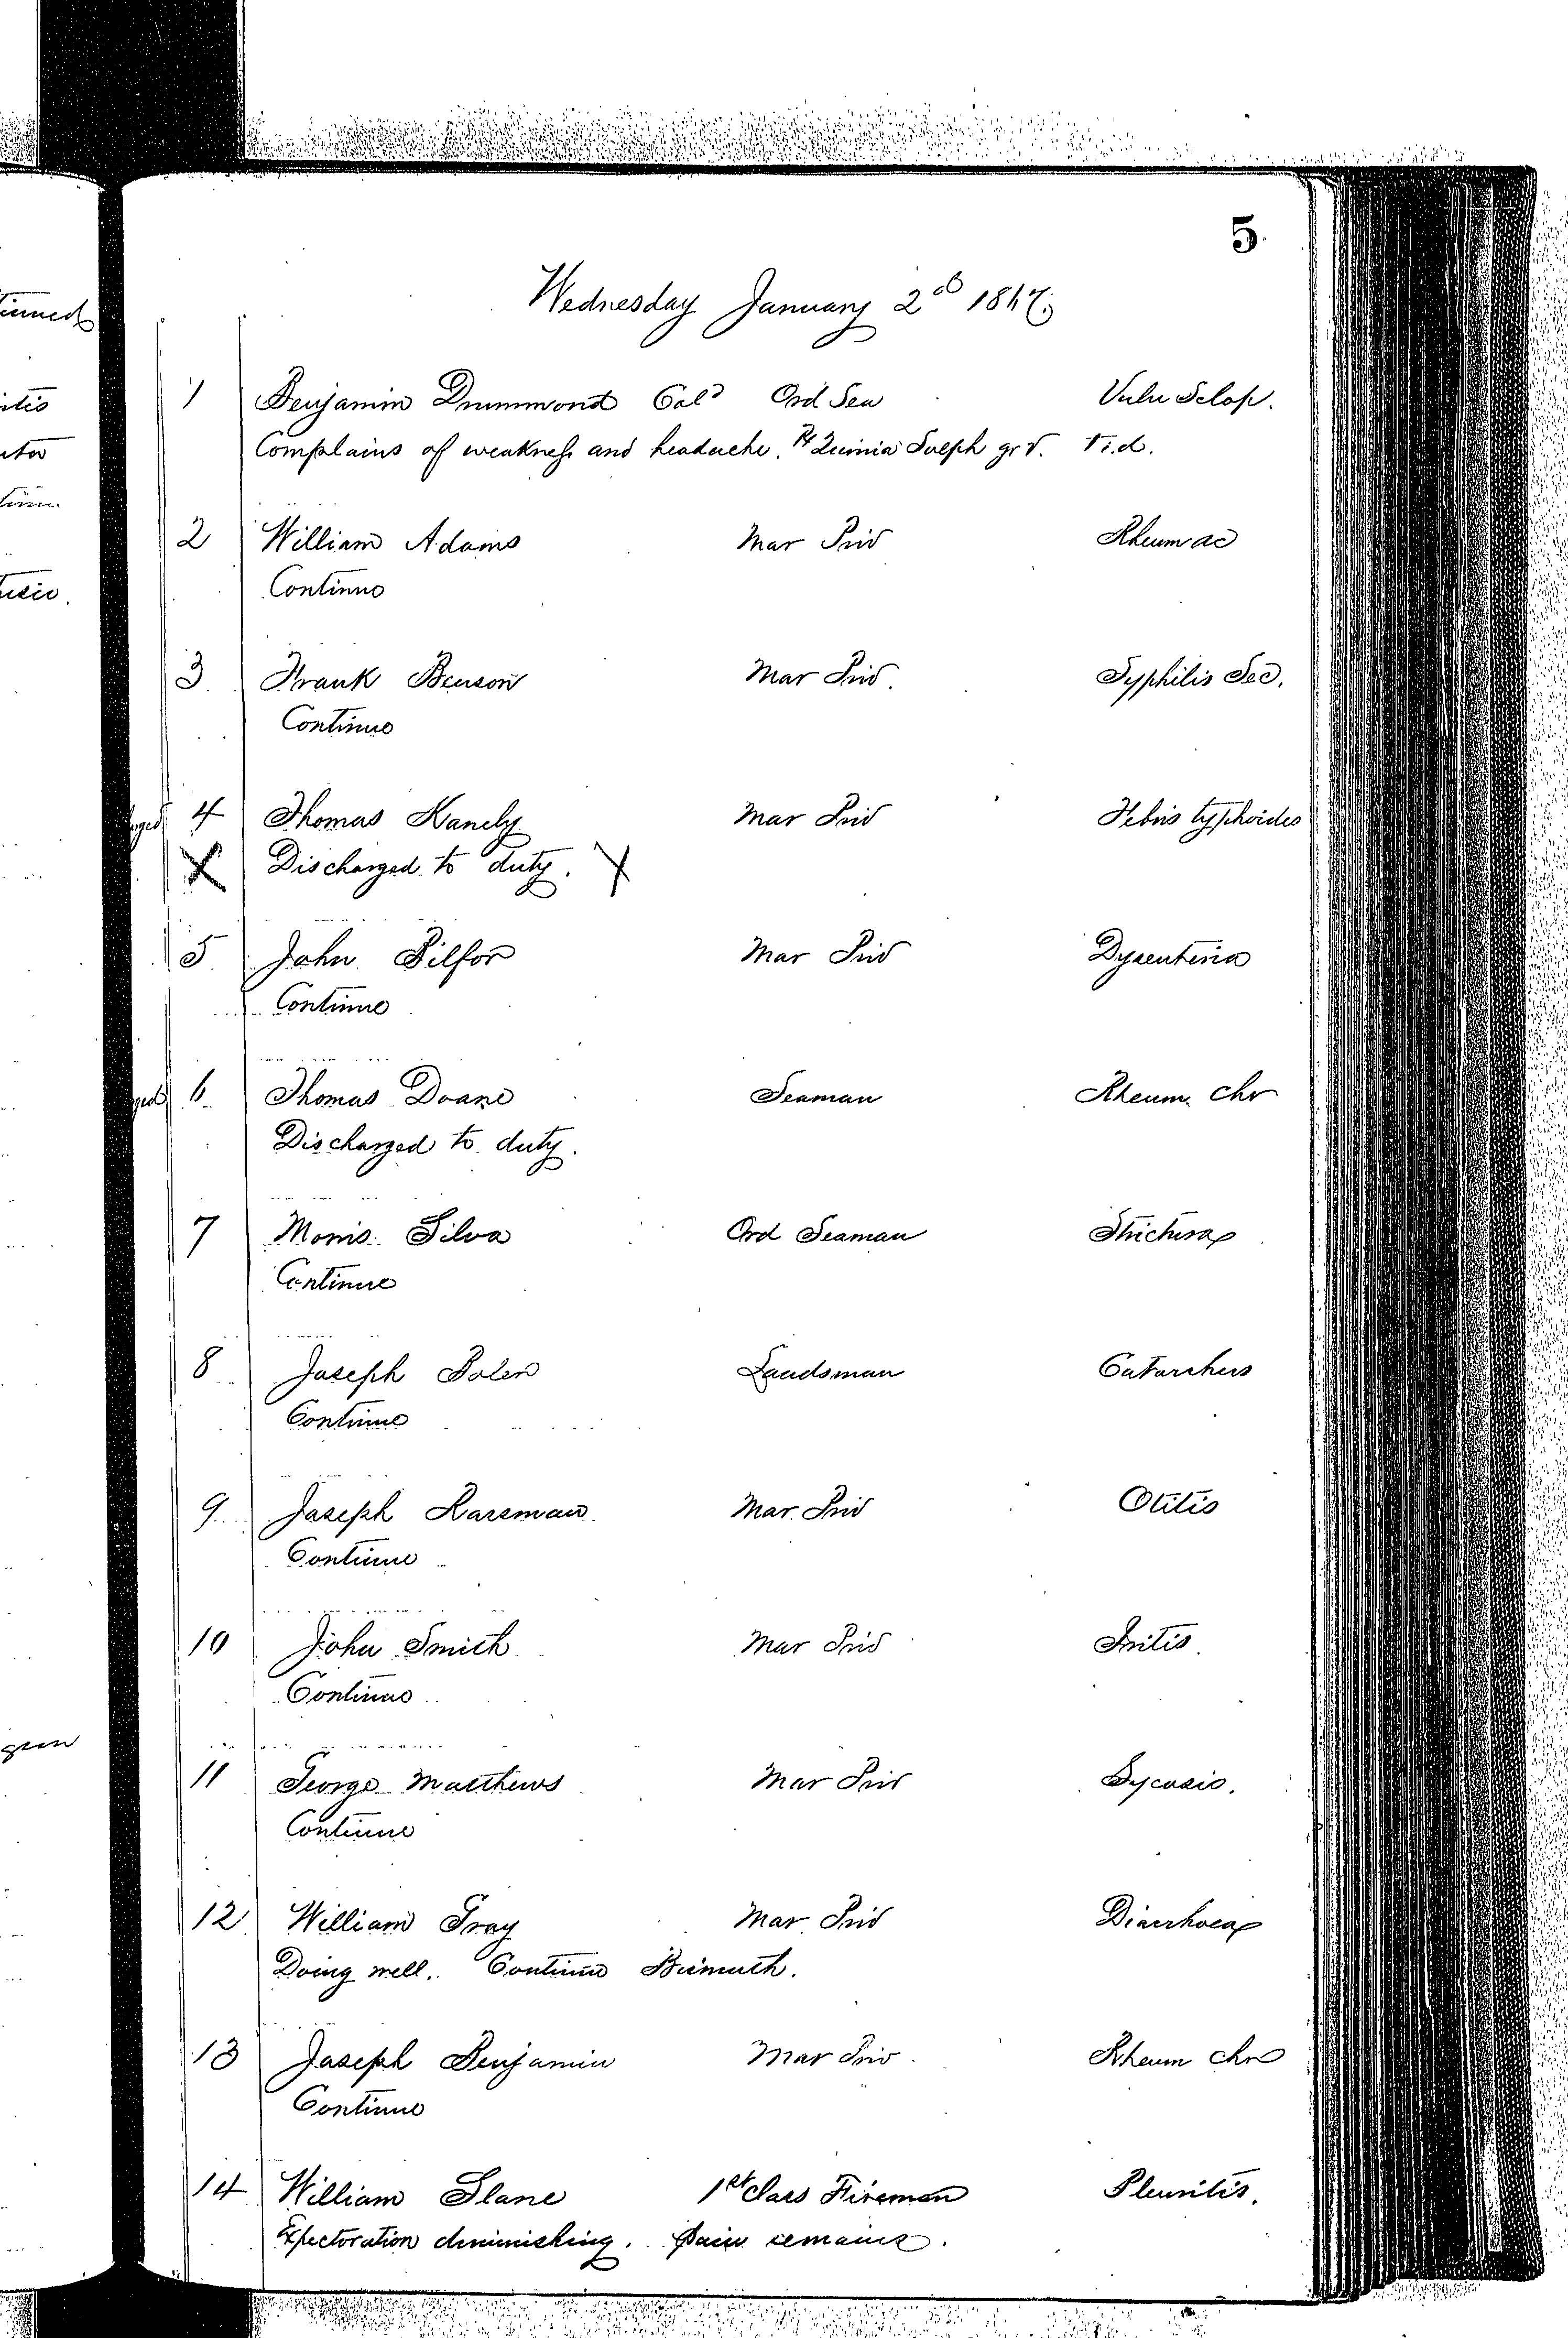 5
Wednesday January 2d 1867.
1 Benjamin Drummond Cold Ord Sea Vuln Sclop.
Complains of weakness and headache. Rx Quinia Sulph gr V. t.i.d.
2 William Adams Mar Priv Rheum ac
Continue
3 Frank Benson Mar Priv. Syphilis Sec.
Continue
4 Thomas Hanely Mar Priv Febris typhoides
X Discharged to duty. X
5 John Pilfor Mar Priv Dysenteria
Continue
6 Thomas Doane Seaman Rheum. Chr
Discharged to duty.
7 Morris Silva Ord Seaman Strictura
Continue
8 Joseph Polen Landsman Catarrhus
Continue
9 Joseph Rassman Mar Priv Otitis
Continue
10 John Smith Mar Priv Iritis
Continue
11 George Matthews Mar Priv Sycosis.
Continue
12 William Gray Mar Priv Diarrhoea
Doing well. Continue Bismuth.
13 Joseph Benjamin Mar Priv Rheum chr
Continue
14 William Slane 1st Class Fireman Pleuritis.
Expectoration diminishing. Pain remains.